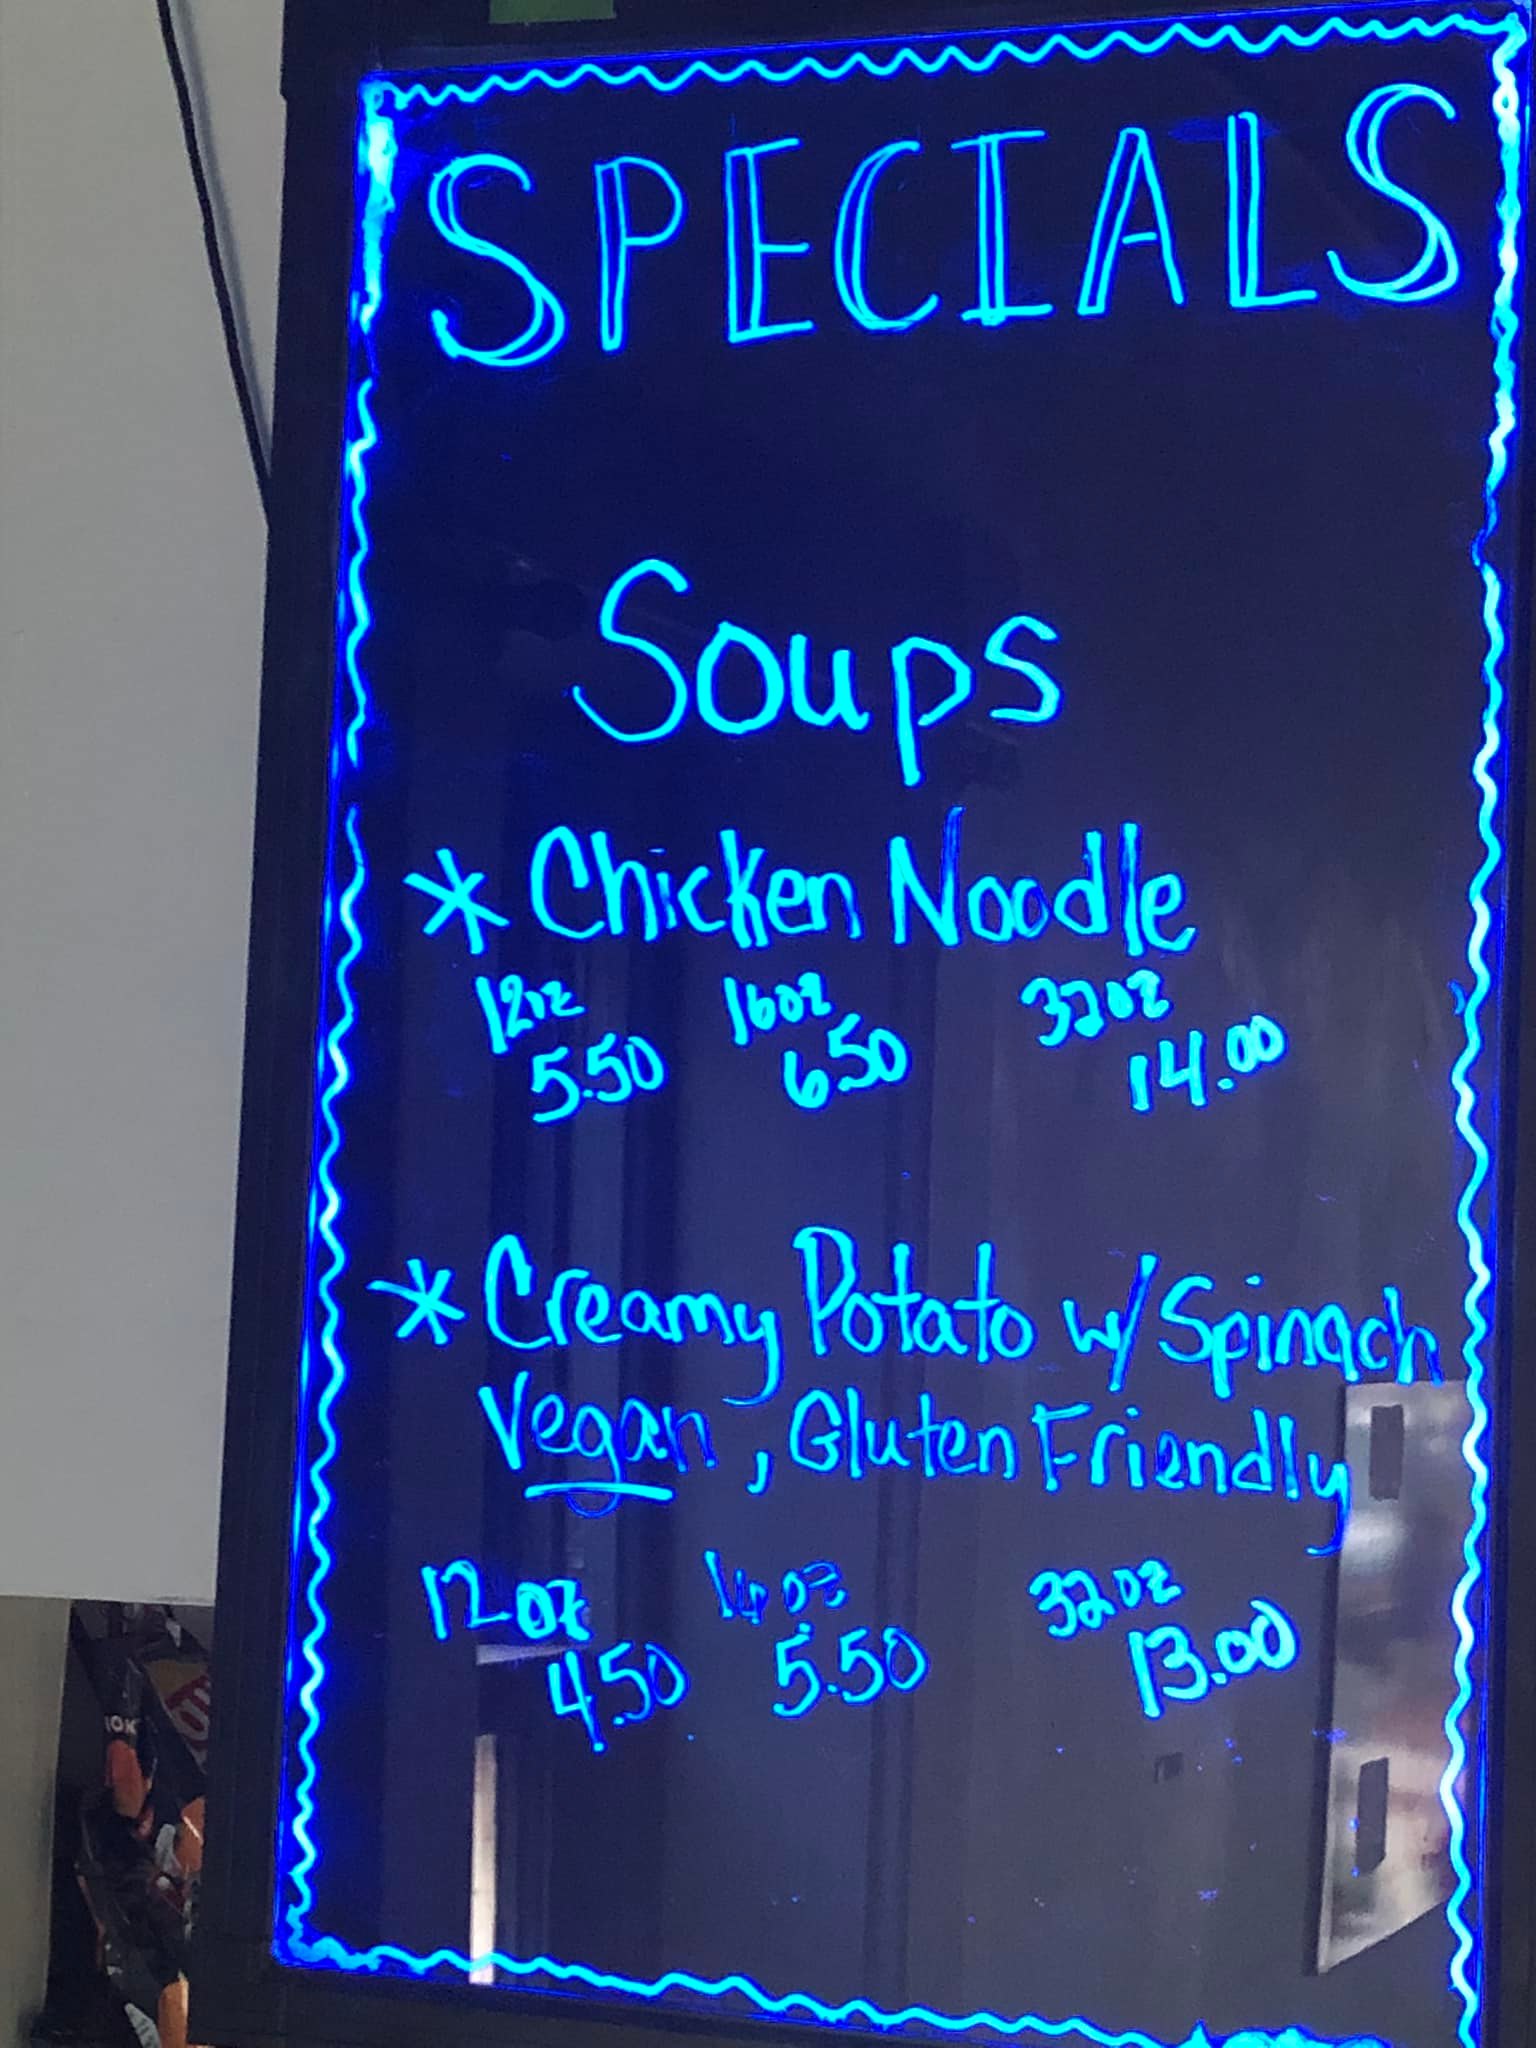 SPECIALS
Soups
* Chicken Noodle
12oz 16oz 32oz
5.50 6.50 14.00
* Creamy Potato w/ Spinach
Vegan, Gluten Friendly
12oz 16oz 32oz
4.50 5.50 13.00